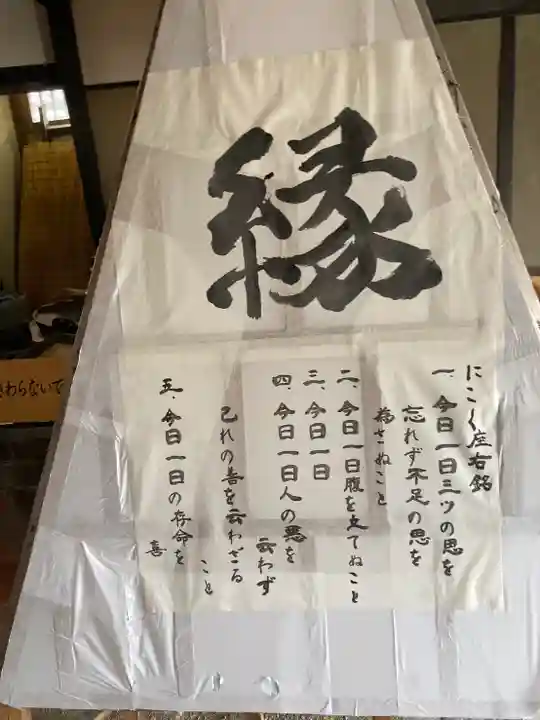 縁
にこく座右銘
一、今日一日三ツの恩を
忘れず不足の思を
為さぬこと
二、今日一日腹を立てぬこと
三、今日一日
四、今日一日人の悪を
云わず
己れの善を云わざる
こと
五、今日一日の存命を
喜
さわらないで